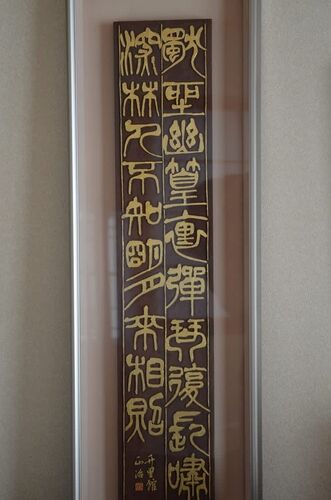 獨坐幽篁裏彈琴復長嘯
深林人不知明月來相照
竹里館